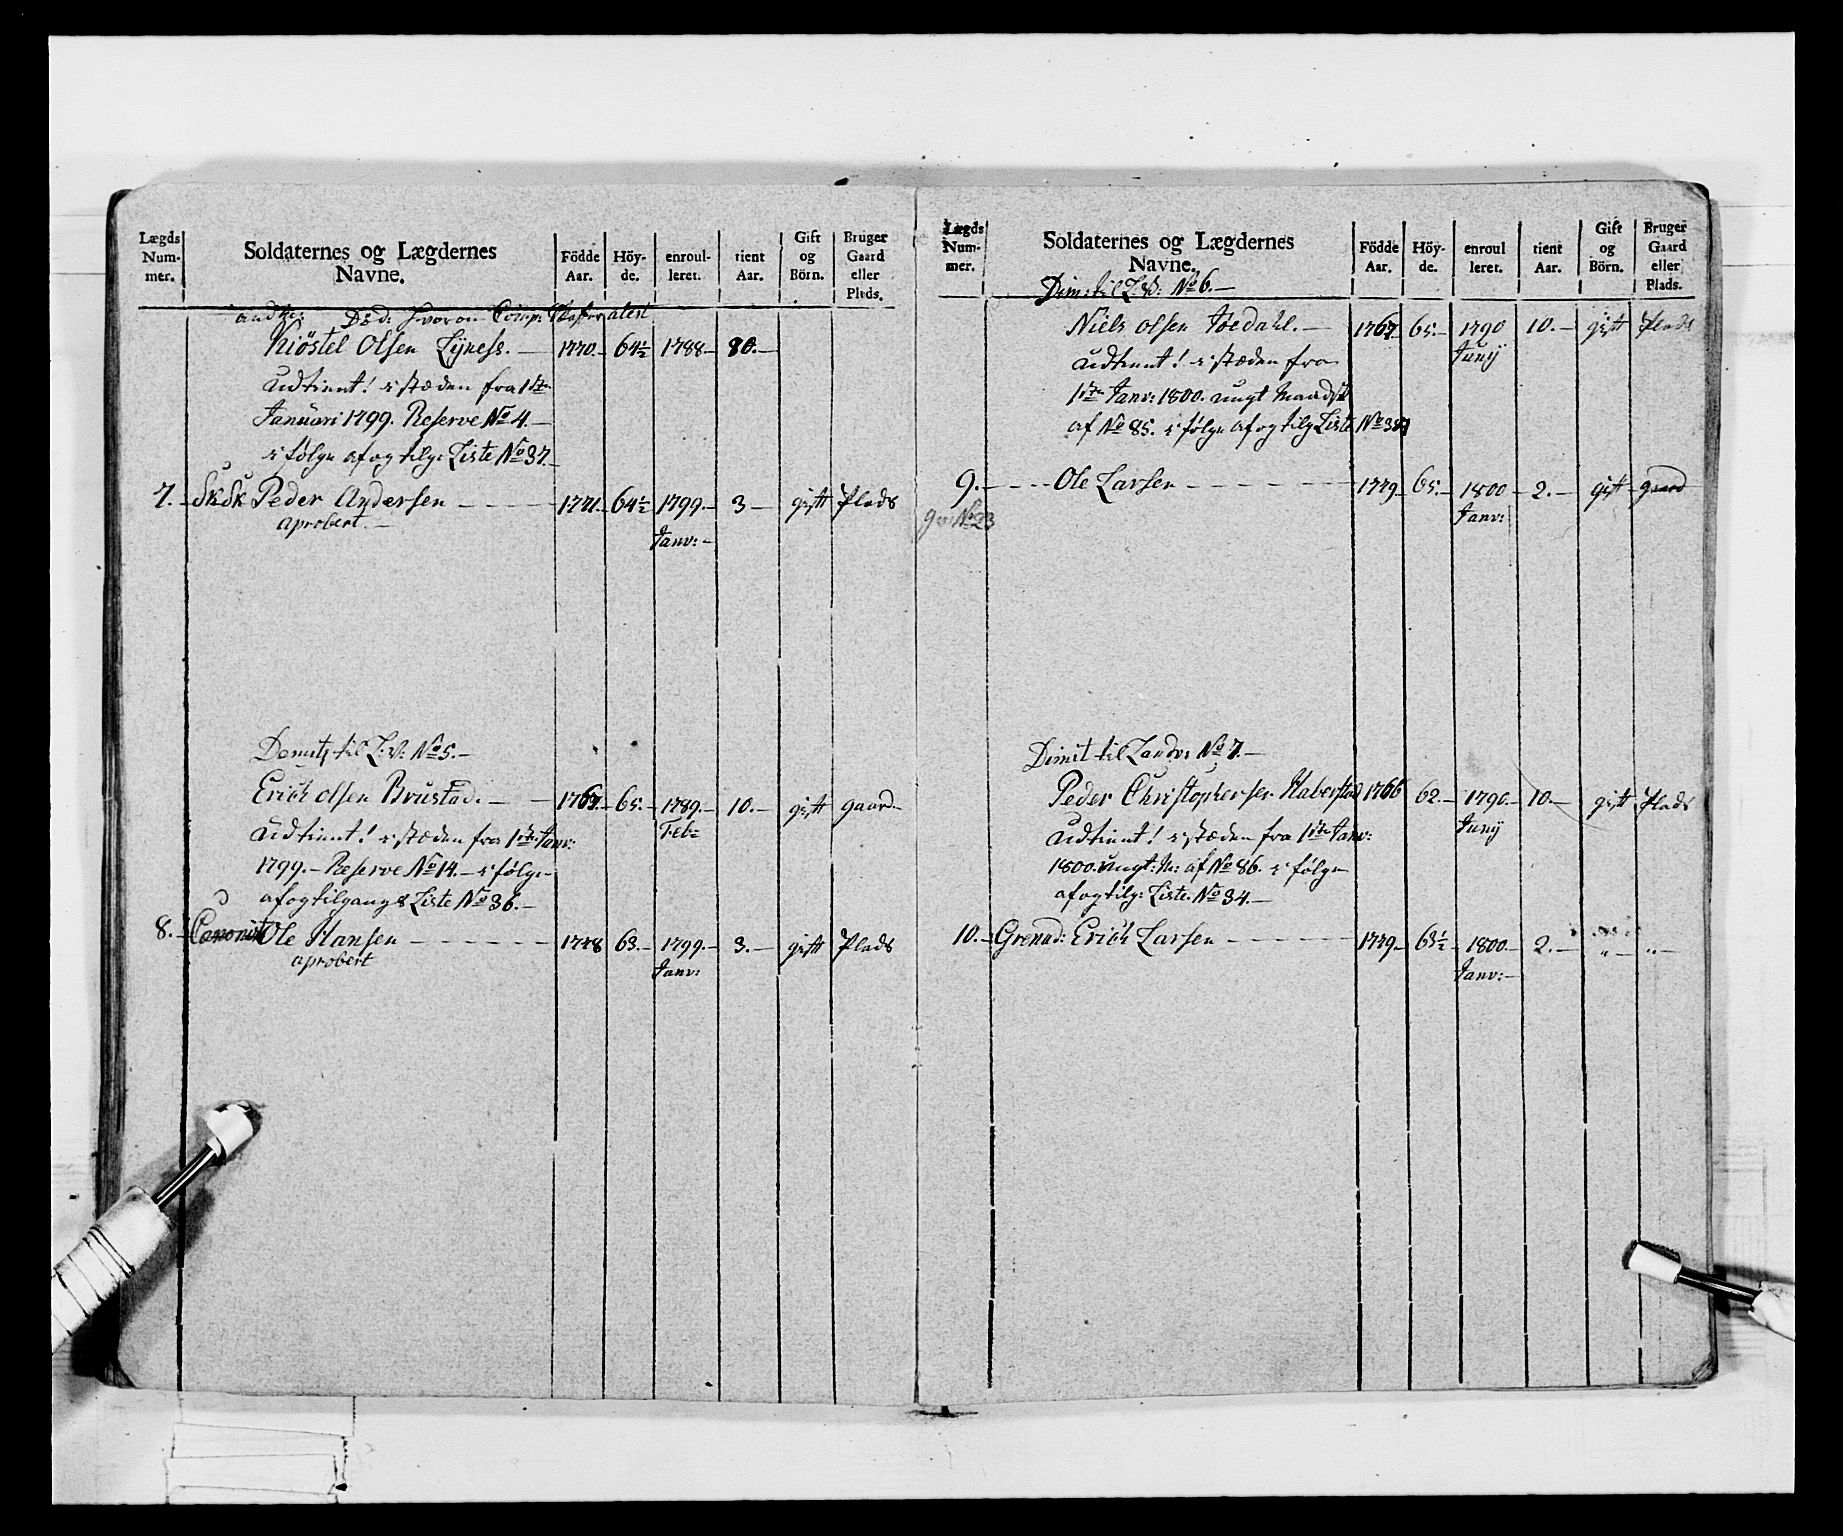 Lægds Num- mer. Soldaternes og Lægdernes Navne. Födde Aar. Höy- de. enroul- leret. tient Aar. Gift og Börn. Bruger Gaard eller Plads.
Död: hvorom Comp:
Kiöstel Olsen Lyness. — 1770.- 64½ 1788- 10.-
udtient! i stæden fra 1ste
Januari 1799. Reserve No 4.-
i følge af og tilg: Liste No 37.-
7.- SkSk Peder Andersen - - - - 1771.- 64½ 1799.- 3 - gift Plads
aprobert.- Janv:-
Demits til L:V: No 5.-
Erich Olsen Brustad. - - 1767.- 65.- 1789.- 10.- gift gaard-
Feb:
udtient! i stæden fra 1ste Janv:
1799.- Reserve No 14.- i følge
af og tilgangs Liste No 36.-
8.- Ole Hansen - - - - - 1778 63.- 1799.- 3.- gift Plads
aprobert Janv:
Lægds Num- mer. Soldaternes og Lægdernes Navne. Födde Aar. Höy- de. enroul leret. tient Aar. Gift og Börn. Bruger Gaard eller Plads.
Dim: til L:V: No 6.-
Niels Olsen Joedahl.- 1767 65.- 1790 10.- gift Plads
Juny
udtient! i stæden fra
1ste Janv: 1800. ungt Mandsk
af No 85. i følge af og tilg Liste No 34
9.- - - - Ole Larsen - - - - - 1779- 65.- 1800- 2.- gift gaard
No 23 Janv:
Dimit til Landv: No 7.-
Peder Christophersen Haberstad 1766 62.- 1790.- 10.- gift Plads
Juny
udtient! i stæden fra 1ste Janv:
1800. ungt: M: af No 86. i følge
af og tilg: Liste. No 34.-
10.- Grenad: Erich Larsen - - - - - 1779.- 63½ 1800- 2.- „ - „ -
Janv:-